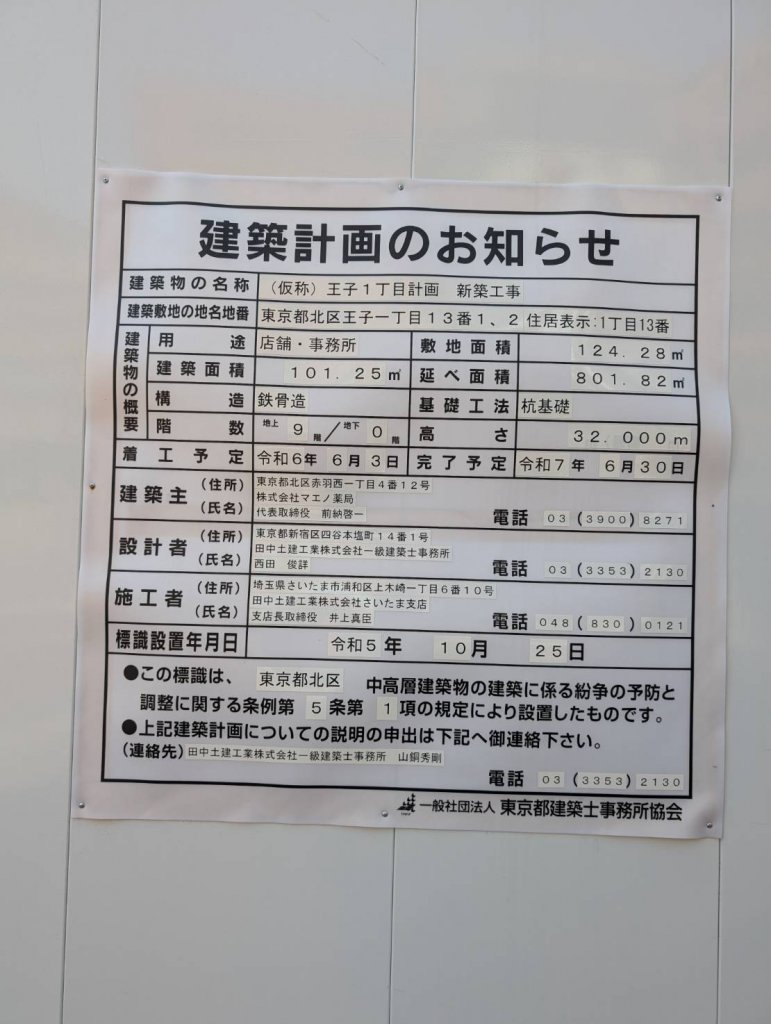 建築計画のお知らせ
建築物の名称 （仮称）王子１丁目計画　新築工事
建築敷地の地名地番 東京都北区王子一丁目１３番１、２ 住居表示:1丁目13番
建築物の概要
用途 店舗・事務所 敷地面積 １２４．２８㎡
建築面積 １０１．２５㎡ 延べ面積 ８０１．８２㎡
構造 鉄骨造 基礎工法 杭基礎
階数 地上 ９ 階／地下 ０ 階 高さ ３２．０００ｍ
着工予定 令和６年 ６月 ３日 完了予定 令和７年 ６月３０日
建築主 （住所） 東京都北区赤羽西一丁目４番１２号
（氏名） 株式会社マエノ薬局
代表取締役　前納啓一 電話 ０３（３９００）８２７１
設計者 （住所） 東京都新宿区四谷本塩町１４番１号
（氏名） 田中土建工業株式会社一級建築士事務所
西田　俊詳 電話 ０３（３３５３）２１３０
施工者 （住所） 埼玉県さいたま市浦和区上木崎一丁目６番１０号
（氏名） 田中土建工業株式会社さいたま支店
支店長取締役　井上真臣 電話 ０４８（８３０）０１２１
標識設置年月日 令和５年 １０月 ２５日
●この標識は、 東京都北区 中高層建築物の建築に係る紛争の予防と
調整に関する条例第 ５ 条第 １ 項の規定により設置したものです。
●上記建築計画についての説明の申出は下記へ御連絡下さい。
（連絡先）田中土建工業株式会社一級建築士事務所　山銅秀剛
電話 ０３（３３５３）２１３０
一般社団法人 東京都建築士事務所協会